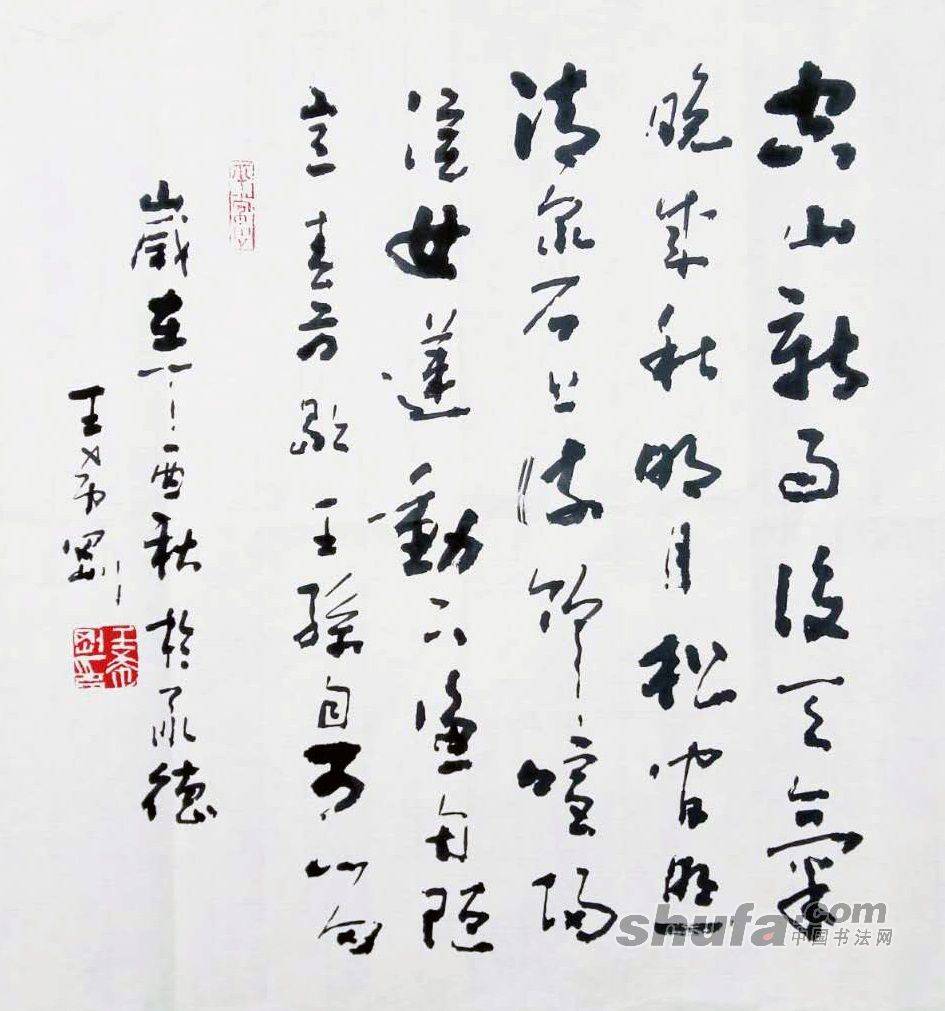 空山新雨後天氣
晚來秋明月松間照
清泉石上流竹喧歸
浣女蓮動下漁舟隨
意春芳歇王孫自可留
歲在丁酉秋於承德
王希剛
shufa.com
中国书法网